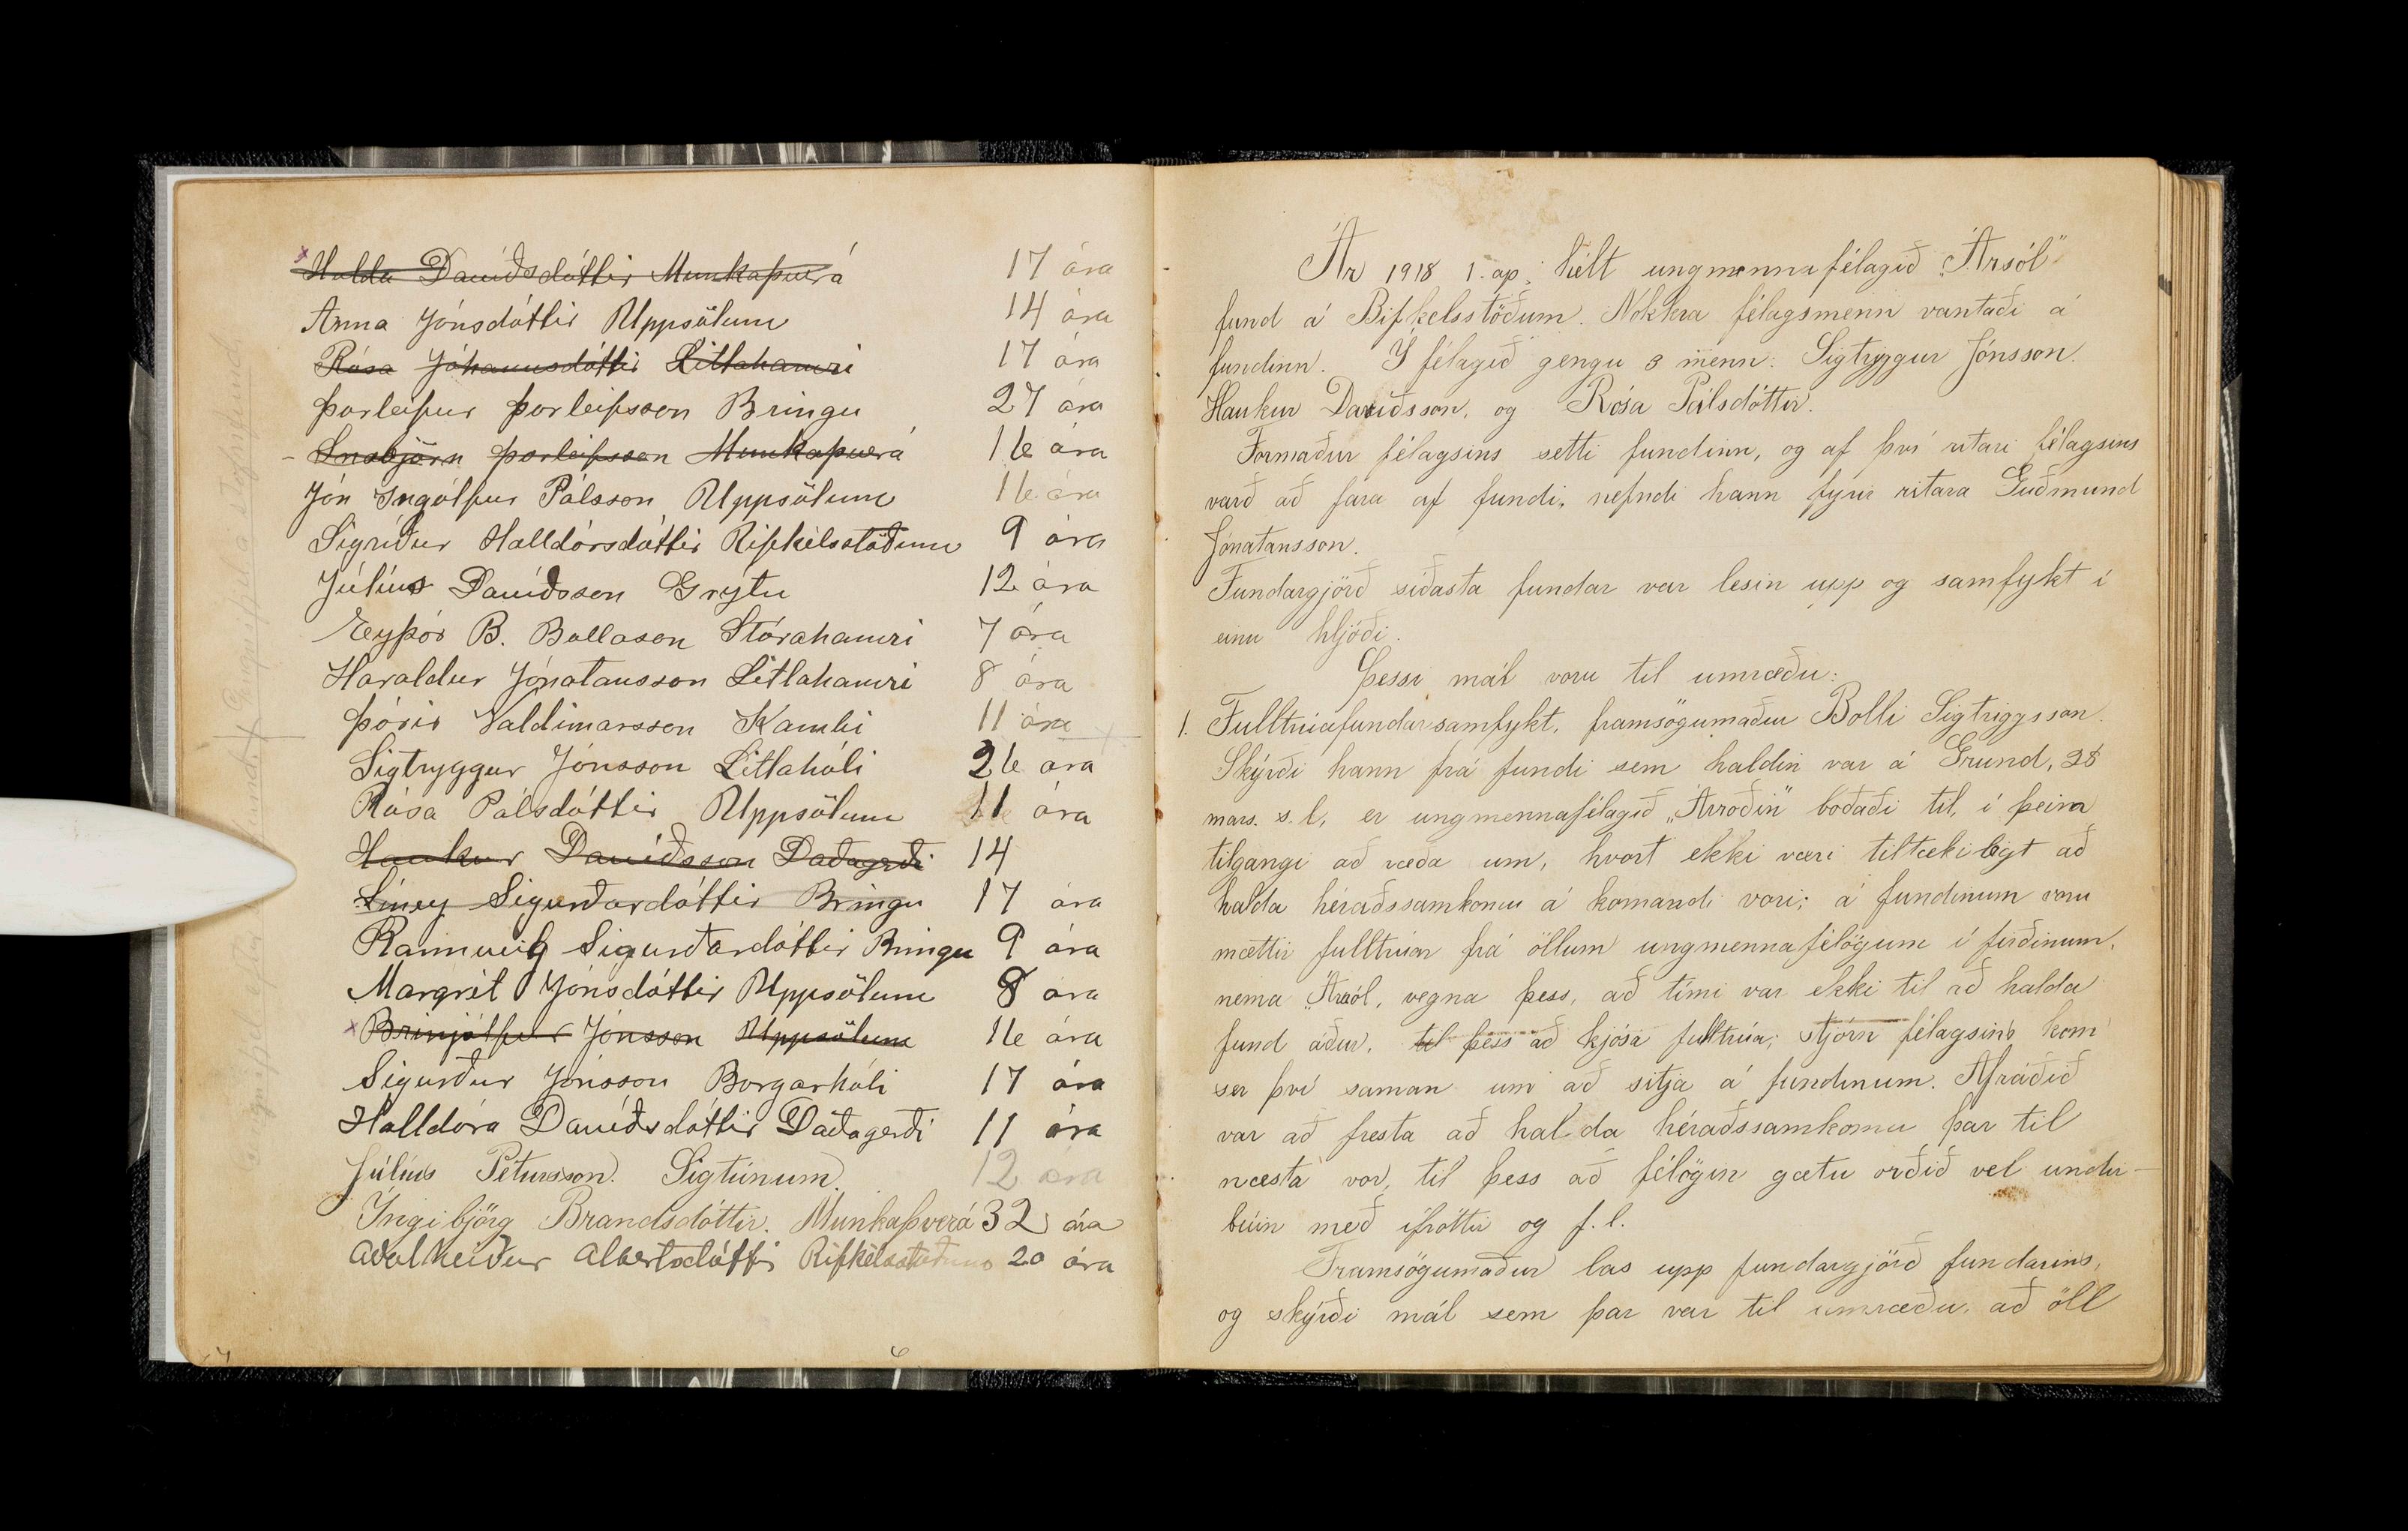 Hulda Davíðsdóttir Munkaþverá 17 ára
Anna Jónsdóttir Uppsölum 14 ára
Rósa Jóhannsdóttir Litlahamri 17 ára
Þorleifur Þorleifsson Bringu 27 ára
Snæbjörn Þorleifsson Munkaþverá 16 ára
Jón Ingólfur Pálsson Uppsölum 16 ára
Sigríður Halldórsdóttir Rifkelsstöðum 9 ára
Júlíus Davíðsson Grýtu 12 ára
Eyþór B. Bollason Stórahamri 7 ára
Haraldur Jónatansson Litlahamri 8 ára
Þórir Valdimarsson Kambi 11 ára
Sigtryggur Jónsson Litlahóli 26 ára
Rósa Pálsdóttir Uppsölum 11 ára
Haukur Davíðsson Daðagerði 14
Líney Sigurðardóttir Bringu 17 ára
Rannveig Sigurðardóttir Bringu 9 ára
Margrét Jónsdóttir Uppsölum 8 ára
Brinjólfur Jónsson Uppsölum 16 ára
Sigurður Jónsson Borgarhóli 17 ára
Halldóra Davíðsdóttir Daðagerði 11 ára
Júlíus Pétursson. Sigtúnum. 12 ára
Ingibjörg Brandsdóttir. Munkaþverá 32 ára
Aðalheiður Albertsdóttir Rifkelsstöðum 20 ára
6
Ár 1918 1. ap; hélt ungmennafélagið „Ársól"
fund á Rifkelsstöðum. Nokkra félagsmenn vantaði á
fundinn. Í félagið gengu 3 menn: Sigtryggur Jónsson.
Haukur Davíðsson, og Rósa Pálsdóttir.
Formaður félagsins setti fundinn, og af því ritari félagsins
varð að fara af fundi, nefndi hann fyrir ritara Guðmund
Jónatansson.
Fundargjörð síðasta fundar var lesin upp og samþykt í
einu hljóði.
Þessi mál voru til umræðu:
1. Fulltrúafundarsamþykt, framsögumaður Bolli Sigtriggsson.
Skýrði hann frá fundi sem haldin var á Grund, 28
mars. s.l, er ungmennafélagið „Árroðin" boðaði til, í þeim
tilgangi að ræða um, hvort ekki væri tiltækilegt að
halda héraðssamkomu á komandi vori; á fundinum voru
mættir fulltrúar frá öllum ungmennafélögum í firðinum,
nema „Ársól, vegna þess, að tími var ekki til að halda
fund áður, til þess að kjósa fulltrúa; stjórn félagsins kom
sér því saman um að sitja á fundinum. Afráðið
var að fresta að halda héraðssamkomu þar til
næsta vor, til þess að félögin gætu orðið vel undir-
búin með íþróttir og f.l.
Framsögumaður las upp fundargjörð fundarins,
og skýrði mál sem þar var til umræðu, að öll